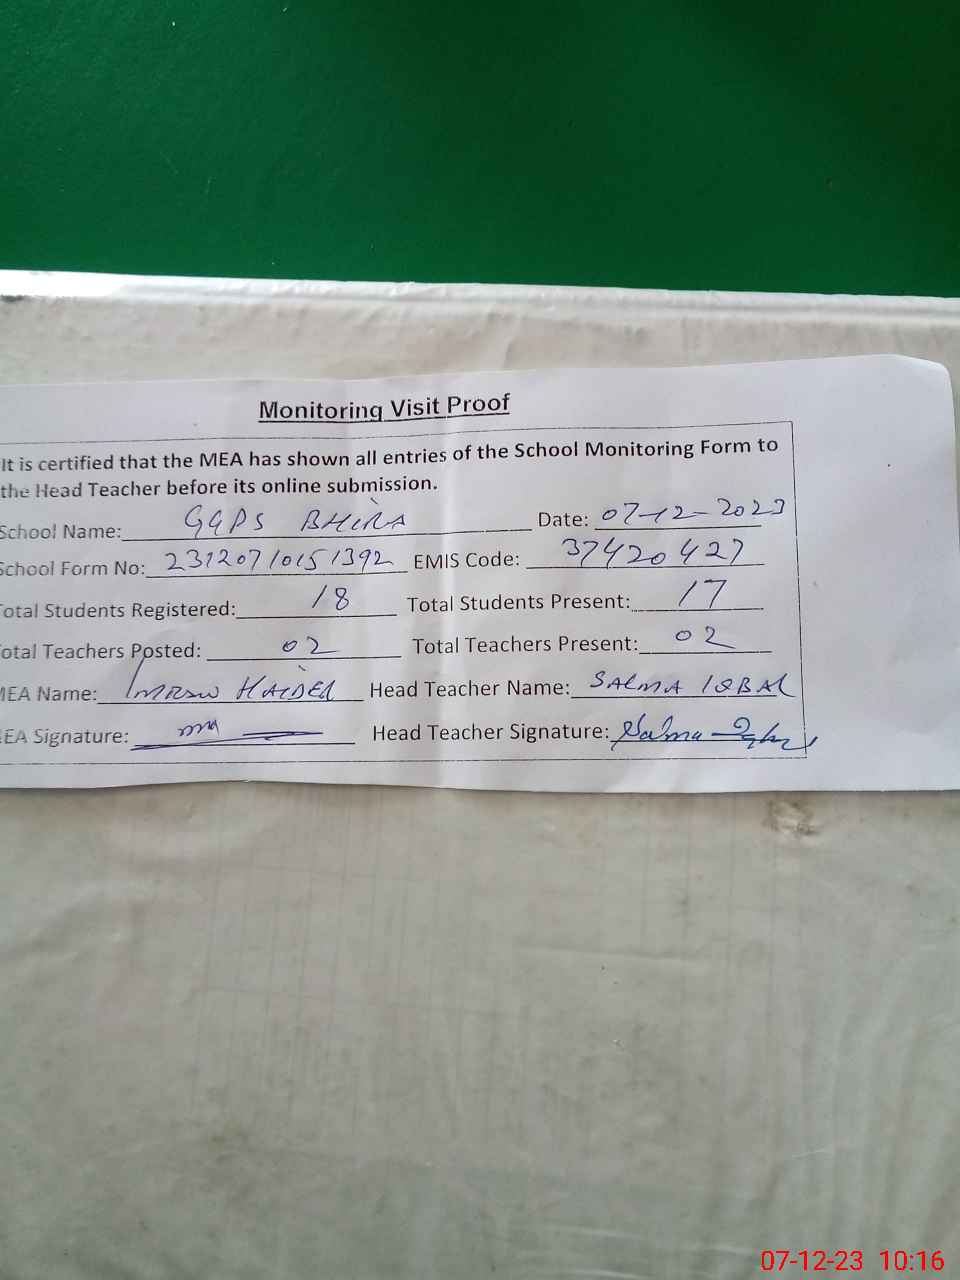 Monitoring Visit Proof
It is certified that the MEA has shown all entries of the School Monitoring Form to
the Head Teacher before its online submission.
School Name: GGPS BHIRA Date: 07-12-2023
School Form No: 23120710151392 EMIS Code: 37420427
Total Students Registered: 18 Total Students Present: 17
Total Teachers Posted: 02 Total Teachers Present: 02
MEA Name: HAIDER Head Teacher Name: SALMA IQBAL
MEA Signature: Head Teacher Signature: Salma Iqbal
07-12-23 10:16